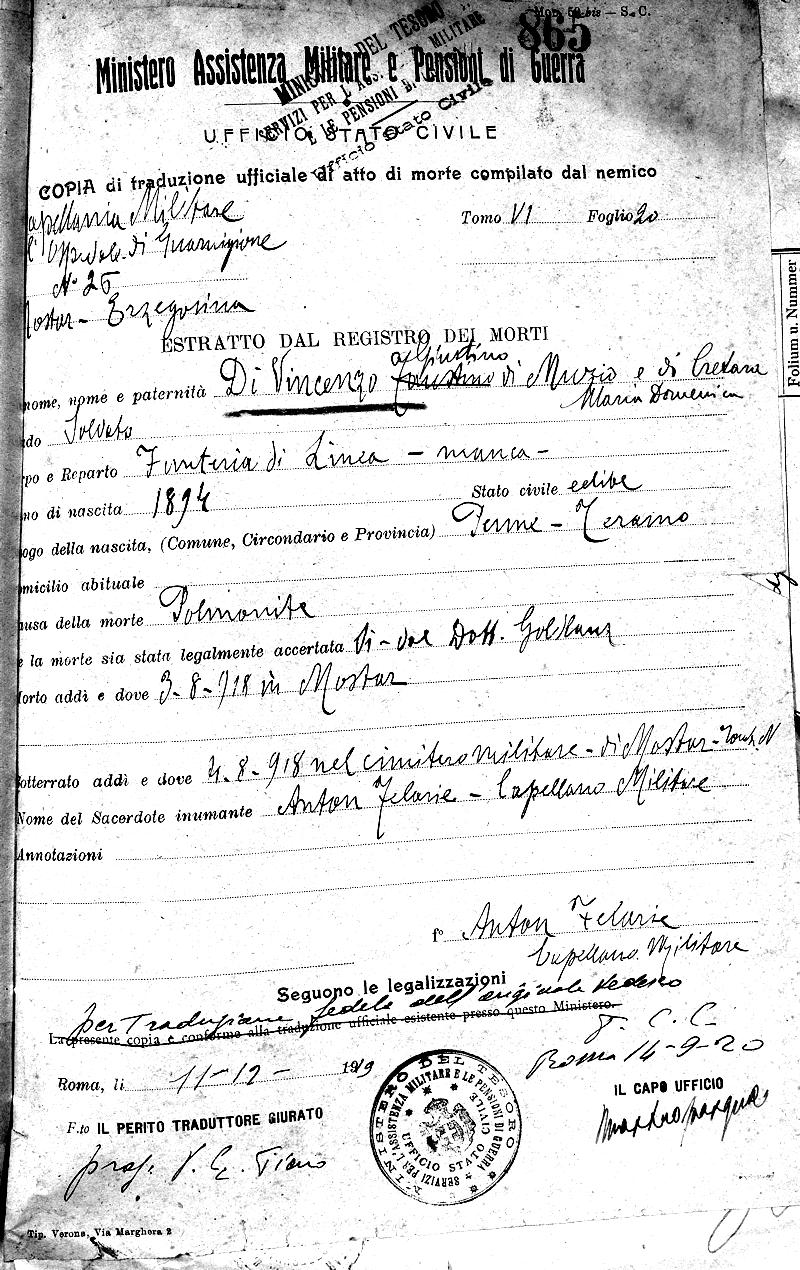 Mod. 53-bis — S. C.
865
Ministero Assistenza Militare e Pensioni di Guerra
MINISTERO DEL TESORO
SERVIZI PER L'ASS. MILITARE
E LE PENSIONI DI
Ufficio Stato Civile
UFFICIO STATO CIVILE
COPIA di traduzione ufficiale di atto di morte compilato dal nemico
apellania Militare
Tomo VI Foglio 20
Ospedale di Guarnigione
No 26
Mostar - Erzegovina
ESTRATTO DAL REGISTRO DEI MORTI
a Giustino
nome, nome e paternità Di Vincenzo Faustino di Muzio e di Cretara
Maria Domenica
ado Soldato
rpo e Reparto Fanteria di Linea - manca -
no di nascita 1894 Stato civile celibe
ogo della nascita, (Comune, Circondario e Provincia) Penne - Teramo
omicilio abituale
ausa della morte Polmonite
e la morte sia stata legalmente accertata Si - dal Dott.
orto addì e dove 3-8-918 in Mostar
otterrato addì e dove 4-8-918 nel cimitero militare - di Mostar -
Nome del Sacerdote inumante Anton Zelarie - Capellano Militare
Annotazioni
fo Anton Zelarie
Capellano Militare
Seguono le legalizzazioni
per Traduzione fedele dell'originale tedesco
La presente copia è conforme alla traduzione ufficiale esistente presso questo Ministero.
T. C. C.
Roma 14-9-20
Roma, li 11-12- 1919
IL CAPO UFFICIO
F.to IL PERITO TRADUTTORE GIURATO
prof. V. E. Tiano
MINISTERO DEL TESORO
SERVIZI PER L'ASSISTENZA MILITARE E LE PENSIONI DI GUERRA
UFFICIO STATO CIVILE
Tip. Verona, Via Marghera 2
Folium u. Nummer